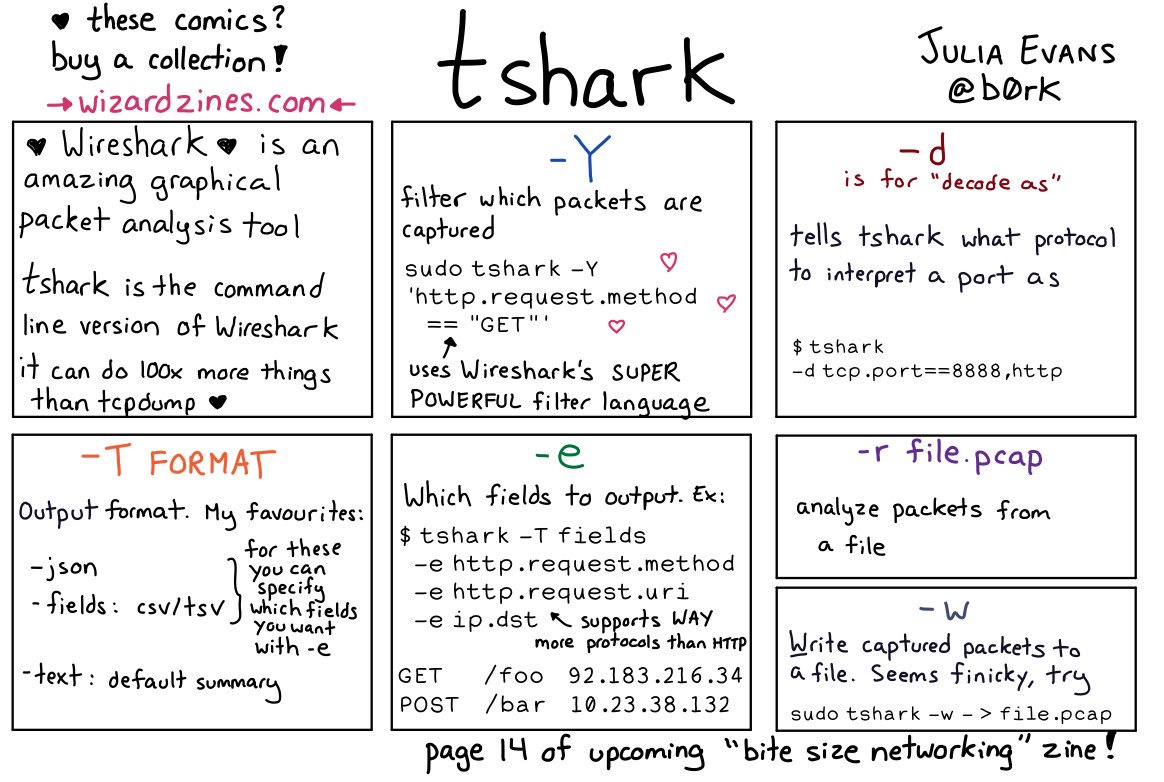 ♥ these comics?
buy a collection!
→wizardzines.com←
tshark
JULIA EVANS
@b0rk
♥ Wireshark ♥ is an
amazing graphical
packet analysis tool
tshark is the command
line version of Wireshark
it can do 100x more things
than tcpdump ♥
-Y
filter which packets are
captured
sudo tshark -Y
'http.request.method
== "GET"'
uses Wireshark's SUPER
POWERFUL filter language
-d
is for "decode as"
tells tshark what protocol
to interpret a port as
$ tshark
-d tcp.port==8888,http
-T FORMAT
Output format. My favourites:
-json
-fields: csv/tsv
for these
you can
specify
which fields
you want
with -e
-text: default summary
-e
Which fields to output. Ex:
$ tshark -T fields
-e http.request.method
-e http.request.uri
-e ip.dst
supports WAY
more protocols than HTTP
GET /foo 92.183.216.34
POST /bar 10.23.38.132
-r file.pcap
analyze packets from
a file
-w
Write captured packets to
a file. Seems finicky, try
sudo tshark -w - > file.pcap
page 14 of upcoming "bite size networking" zine!